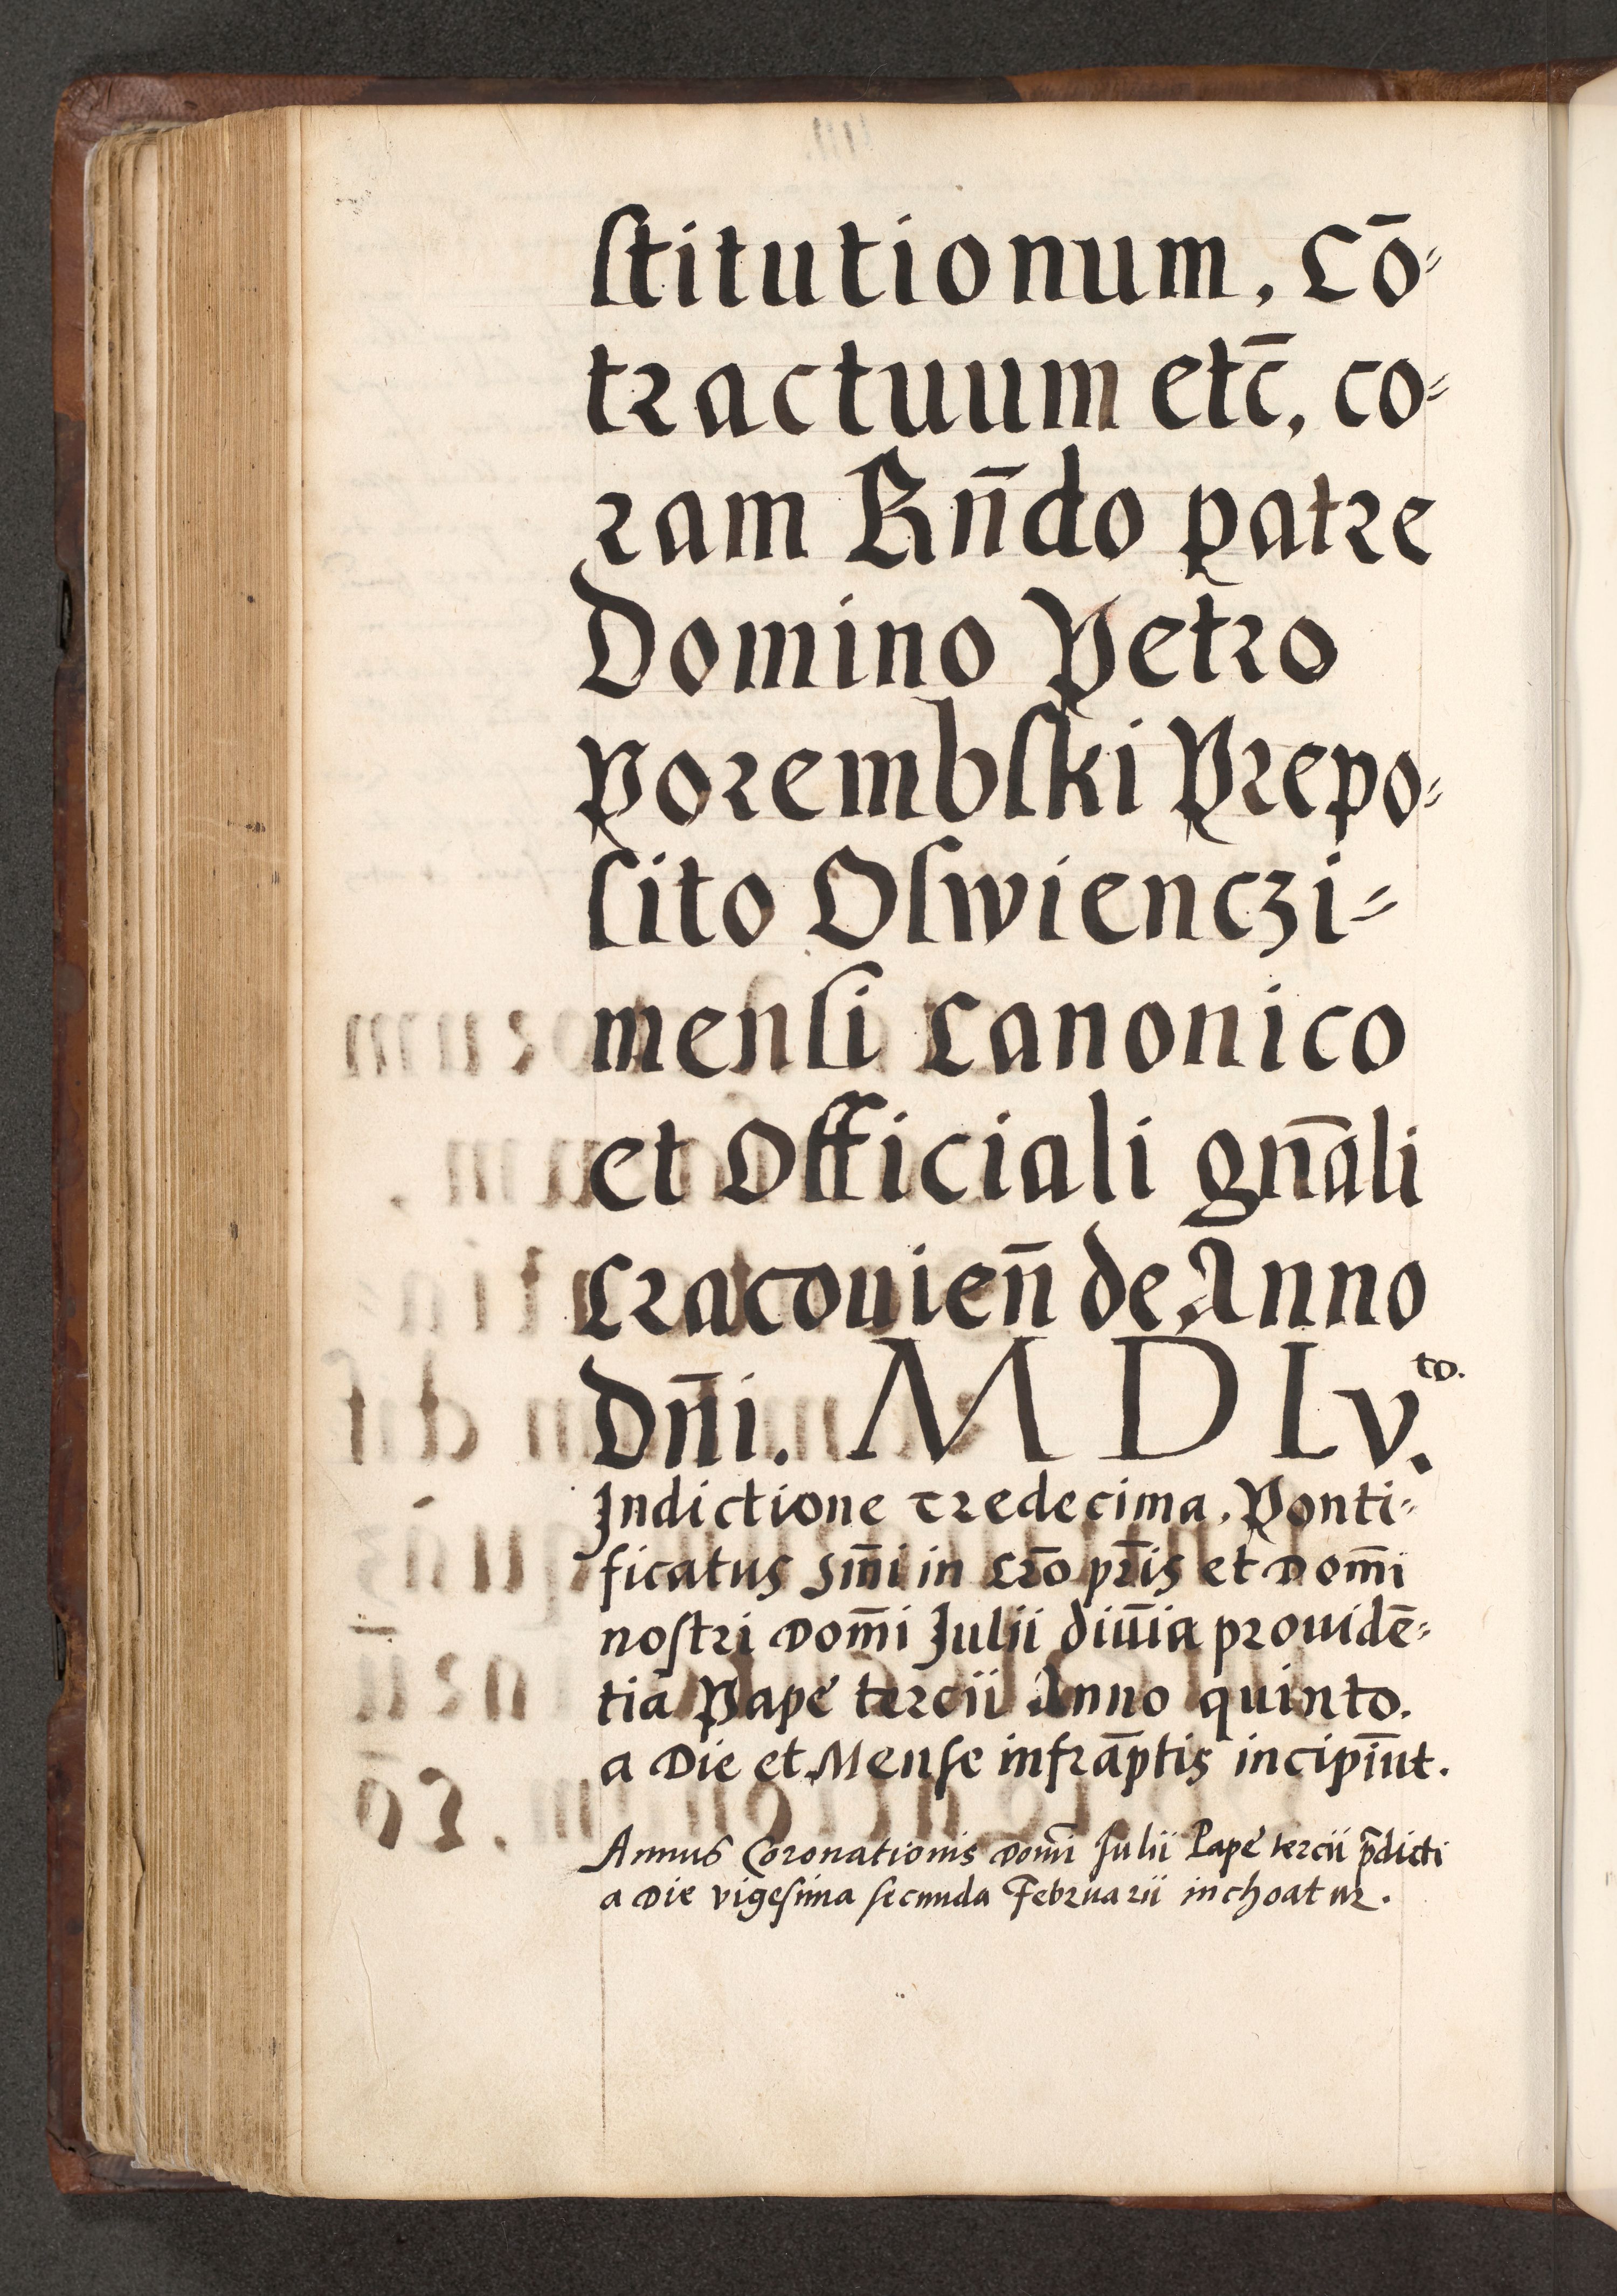 stitutionum, Cō=
tractuum etc̄, co=
ram Rn̄do patre
Domino Petro
Porembski Prepo=
sito Oswienczi=
mensi Canonico
et Officiali gn̄ali
Cracouien̄ de Anno
Dn̄i. M D L v.to.
Indictione tredecima, Ponti=
ficatus Sm̄i in Cro᷃ pr̄is et Dom̄i
nostri Dom̄i Julii diūīa prouidē=
tia Pape tercii Anno quinto.
a Die et Mense infrāptis incipiūt.
Annus Coronationis Domī Julii Pape tercii p̄dicti
a Die vigesima secunda Februarii inchoatur.